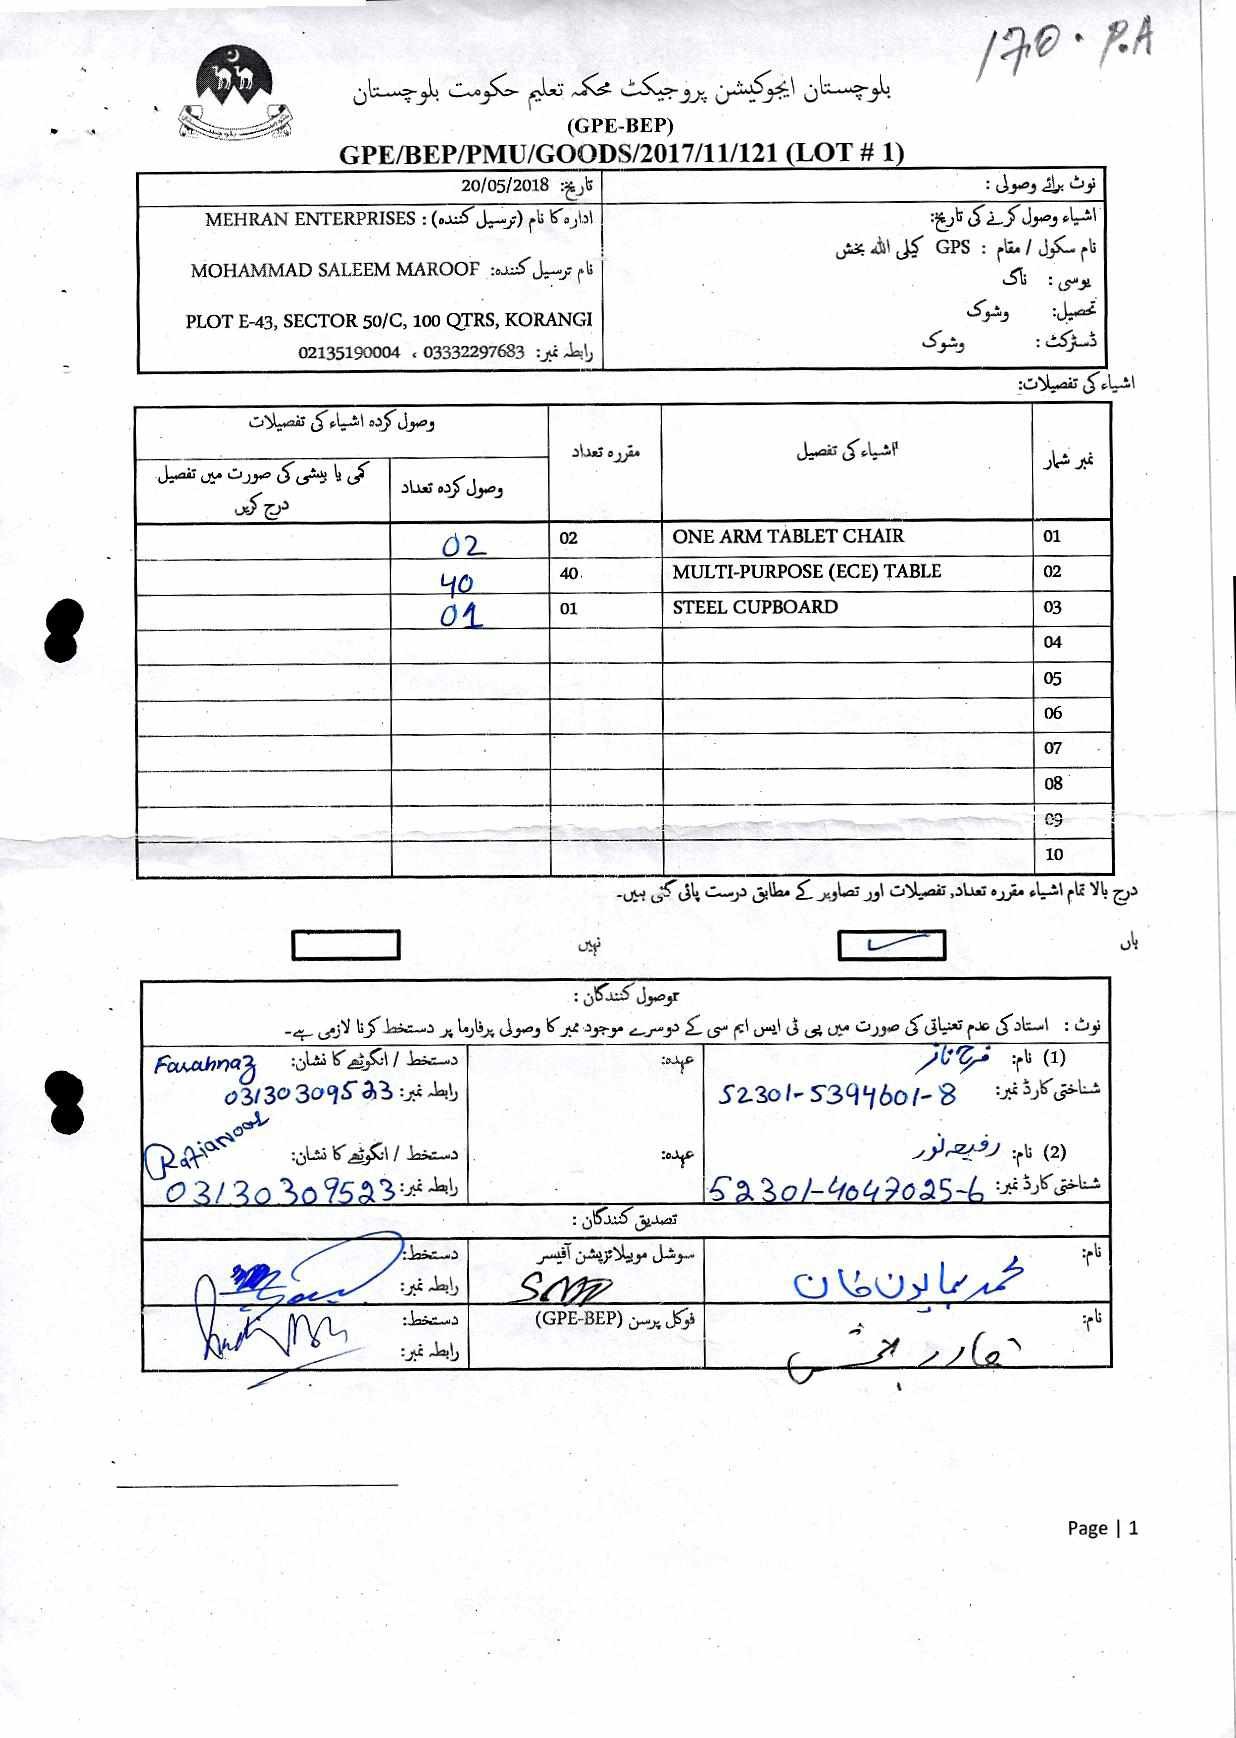 170. P.A
بلوچستان ایجوکیشن پروجیکٹ محکمہ تعلیم حکومت بلوچستان
(GPE-BEP)
GPE/BEP/PMU/GOODS/2017/11/121 (LOT # 1)
نوٹ برائے وصولی :
تاریخ: 20/05/2018
اشیاء وصول کرنے کی تاریخ:
نام سکول / مقام : GPS کیلی اللہ بخش
یوسی : ناگ
تحصیل: وشوک
ڈسٹرکٹ : وشوک
ادارہ کا نام (ترسیل کنندہ) : MEHRAN ENTERPRISES
نام ترسیل کنندہ: MOHAMMAD SALEEM MAROOF
PLOT E-43, SECTOR 50/C, 100 QTRS, KORANGI
رابطہ نمبر: 03332297683 ، 02135190004
اشیاء کی تفصیلات:
نمبر شمار اشیاء کی تفصیل مقررہ تعداد وصول کردہ اشیاء کی تفصیلات
وصول کردہ تعداد کمی یا بیشی کی صورت میں تفصیل درج کریں
01 ONE ARM TABLET CHAIR 02 02
02 MULTI-PURPOSE (ECE) TABLE 40 40
03 STEEL CUPBOARD 01 01
04
05
06
07
08
09
10
درج بالا تمام اشیاء مقررہ تعداد, تفصیلات اور تصاویر کے مطابق درست پائی گئی ہیں۔
ہاں ✓ نہیں
وصول کنندگان :
نوٹ : استاد کی عدم تعیناتی کی صورت میں پی ٹی ایس ایم سی کے دوسرے موجود ممبر کا وصولی پرفارما پر دستخط کرنا لازمی ہے۔
(1) نام: فرح ناز عہدہ: دستخط / انگوٹھے کا نشان: Farahnaz
شناختی کارڈ نمبر: 52301-5394601-8 رابطہ نمبر: 03130309523
(2) نام: رفیعہ نور عہدہ: دستخط / انگوٹھے کا نشان: Rafianoor
شناختی کارڈ نمبر: 52301-4047025-6 رابطہ نمبر: 03130309523
تصدیق کنندگان :
نام: محمد ہمایون خان سوشل موبیلائزیشن آفیسر دستخط:
رابطہ نمبر:
نام: قادر بخش فوکل پرسن (GPE-BEP) دستخط:
رابطہ نمبر:
Page | 1